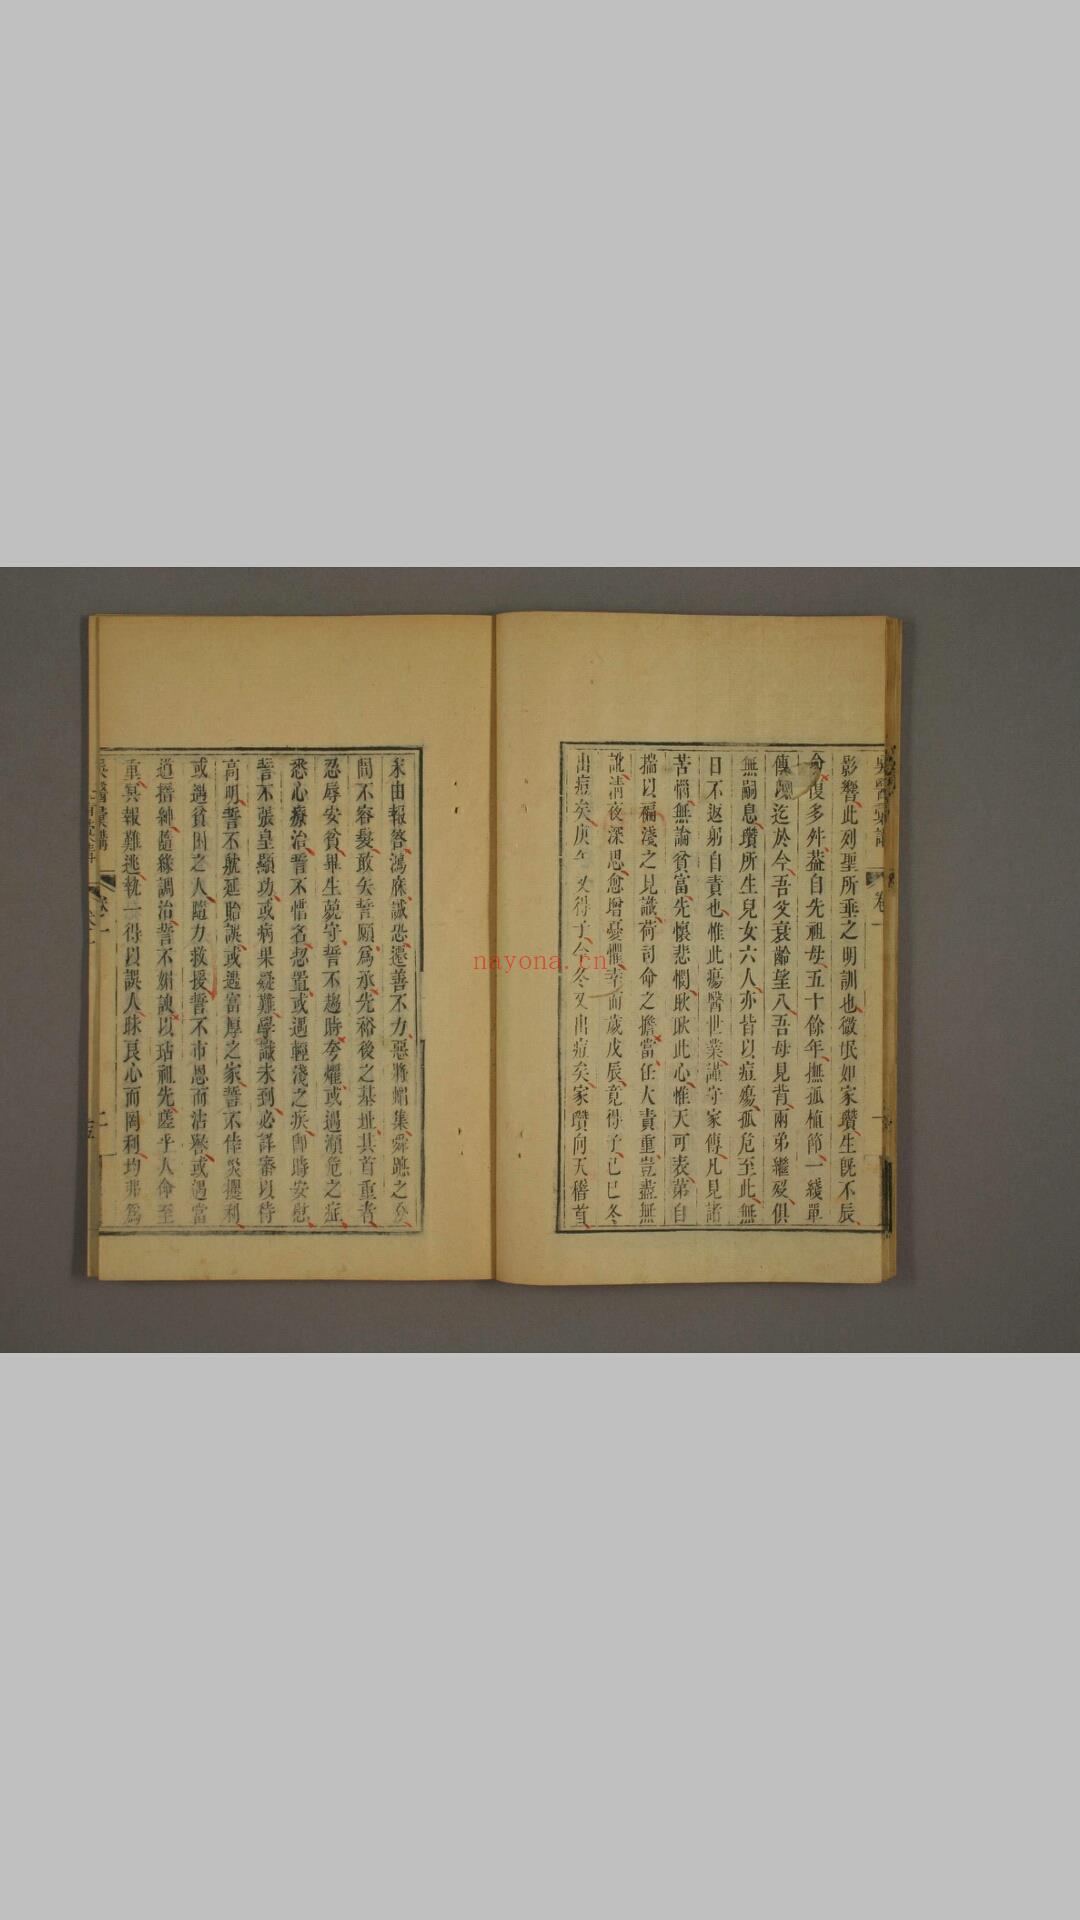 吳醫彙講
卷一
影響此列聖所垂之明訓也微氓如家瓚生旣不辰
復多舛葢自先祖母五十餘年撫孤植節一綫單
傳 迄於今吾父衰齡望八吾母見背兩弟繼殁俱
無嗣息瓚所生兒女六人亦皆以痘殤孤危至此無
日不返躬自責也惟此瘍醫世業謹守家傳凡見諸
苦惱無論貧富先懷悲憫耿耿此心惟天可表第自
揣以褊淺之見識荷司命之擔當任大責重豈盡無
訛清夜深思愈增憂懼幸而歲戊辰竟得子己巳冬
出痘矣庚午又得子今冬又出痘矣家瓚向天稽首
未由報答鴻庥誠恐遷善不力惡將媢集舜蹠之分
間不容髮敢矢誓願爲承先裕後之基址其首重者
忍辱安貧畢生競守誓不趨時夸燿或遇瀕危之症
悉心療治誓不惜名恝置或遇輕淺之疾卽時安慰
誓不張皇顯功或病果疑難學識未到必詳審以待
高明誓不躭延貽誤或遇富厚之家誓不倖災攫利
或遇貧困之人隨力救援誓不市恩而沽譽或遇當
道搢紳隨緣調治誓不媚諛以玷祖先嗟乎人命至
重冥報難逃執一得以誤人昧良心而罔利均非爲
吳醫彙講
卷一
二
nayona.cn